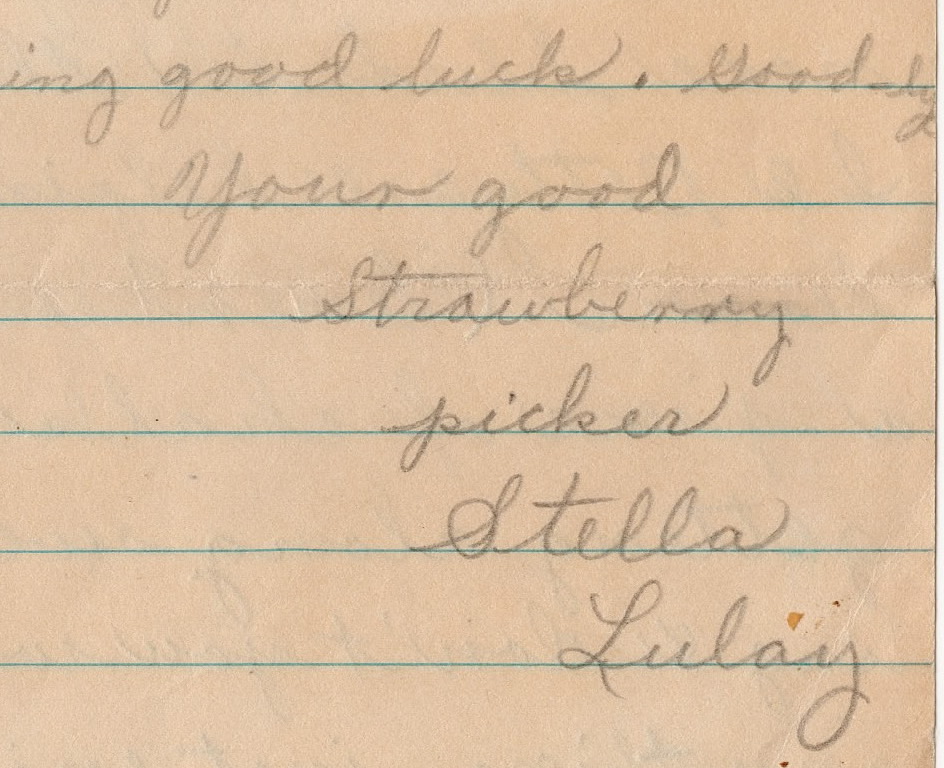 ing good luck. Good-by
Your good
Strawberry
picker
Stella
Lulay